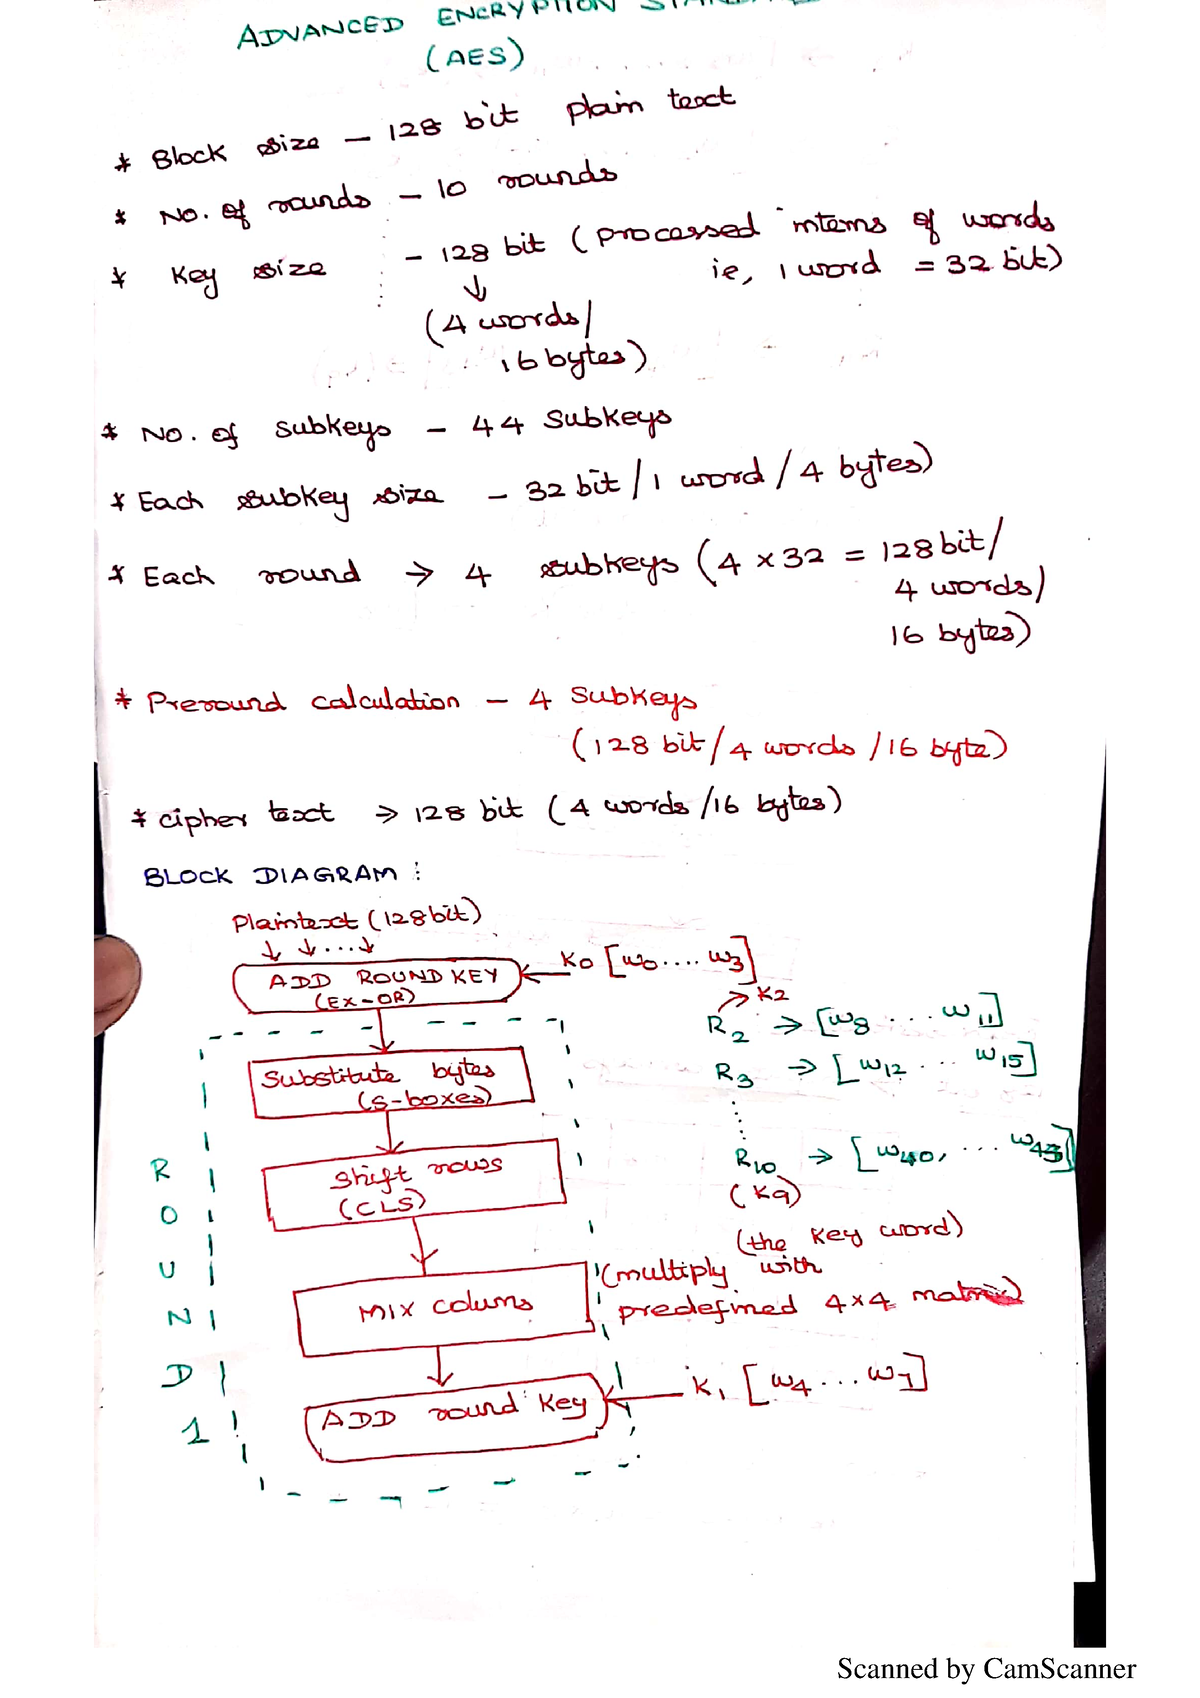 ADVANCED ENCRYPTION
(AES)
* Block size – 128 bit plain text
* No. of rounds – 10 rounds
* Key size – 128 bit (processed interms of words
ie, 1 word = 32 bit)
(4 words/
16 bytes)
* No. of subkeys – 44 subkeys
* Each subkey size – 32 bit / 1 word / 4 bytes)
* Each round → 4 subkeys (4 x 32 = 128 bit/
4 words/
16 bytes)
* Preround calculation – 4 Subkeys
(128 bit / 4 words / 16 byte)
* cipher text → 128 bit (4 words /16 bytes)
BLOCK DIAGRAM :
Plaintext (128 bit)
ADD ROUND KEY
(EX-OR)
K0 [w0 .... w3]
K2
R2 → [w8 ... w11]
Substitute bytes
(S-boxes)
R3 → [w12 ... w15]
Shift rows
(CLS)
R10 → [w40, ... w43]
(K9)
(the key word)
Mix colums
(multiply with
predefined 4x4 matrix)
ADD round key
K1 [w4 ... w7]
ROUND 1
Scanned by CamScanner